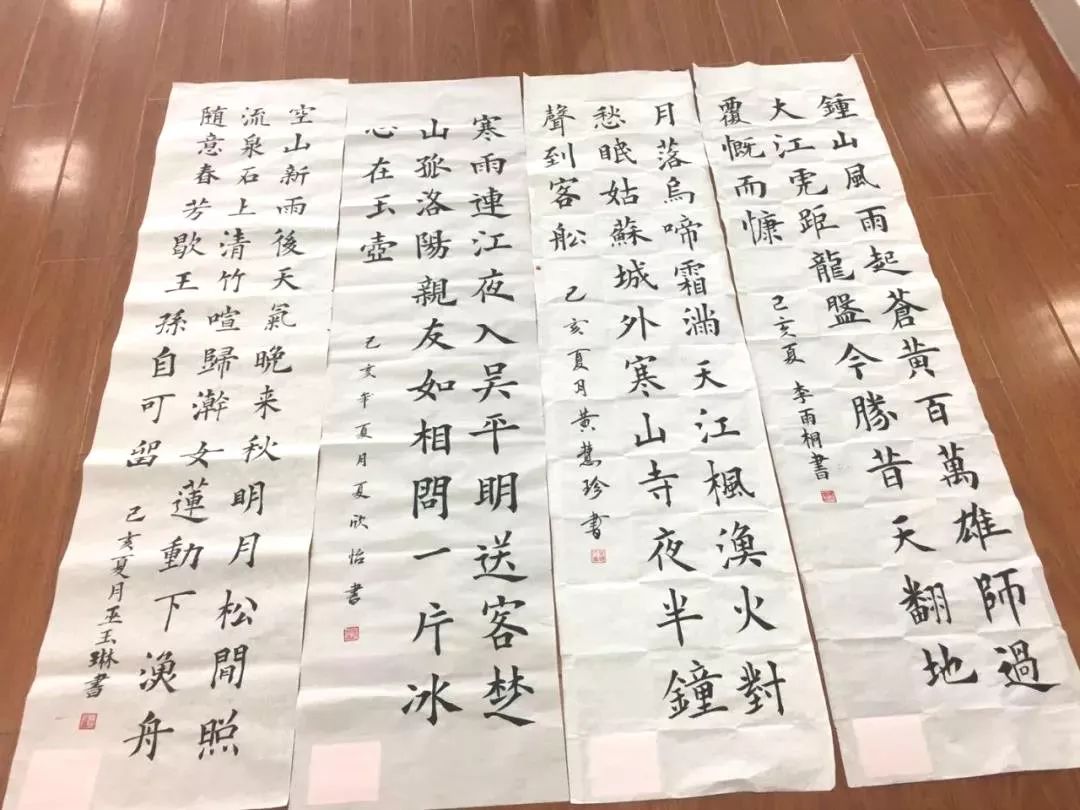 鍾山風雨起蒼黃百萬雄師過
大江虎距龍盤今勝昔天翻地
覆慨而慷 己亥夏 李雨桐書
月落烏啼霜滿天江楓漁火對
愁眠姑蘇城外寒山寺夜半鐘
聲到客船 己亥夏月黃慧珍書
寒雨連江夜入吴平明送客楚
山孤洛陽親友如相問一片冰
心在玉壺 己亥年夏月夏欣怡書
空山新雨後天氣晚来秋明月松間照
流泉石上清竹喧歸澣女蓮動下漁舟
随意春芳歇王孫自可留 己亥夏月巫玉琳書